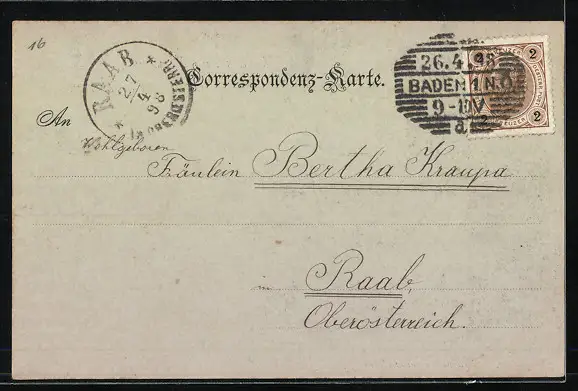 16
RAAB
27
4
98
OBEROESTERR
26.4.98
BADEN 1 N.Ö
9-10V
a
KREUZER
2
2
KREUZER
Correspondenz-Karte.
An
Wohlgeboren
Fräulein Bertha Kraupa
in Raab,
Oberösterreich.